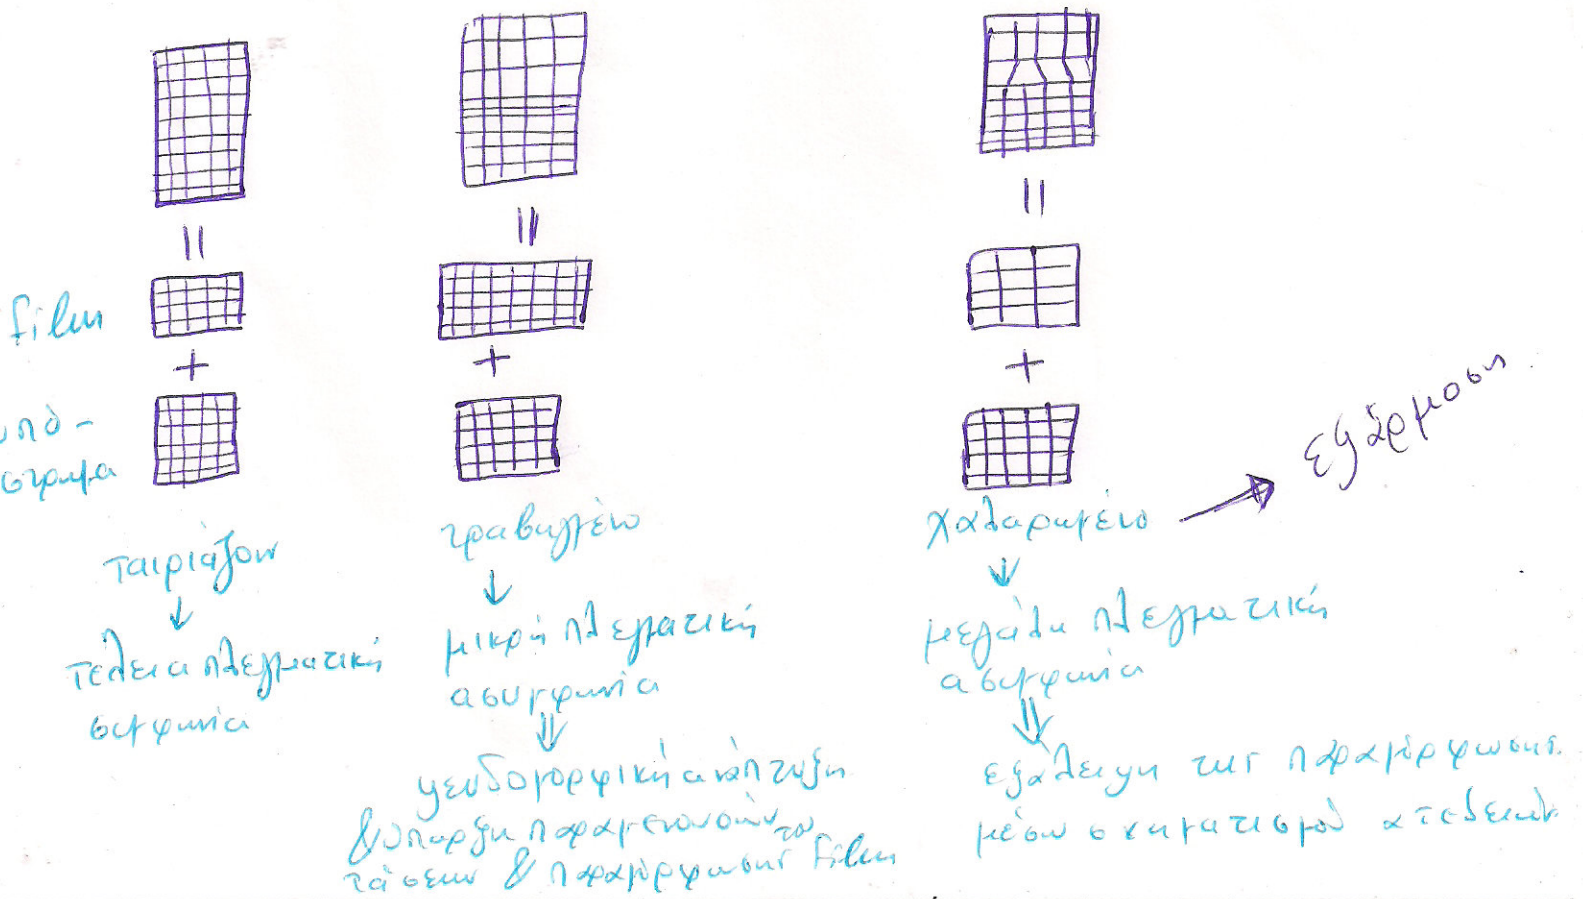 film
υπό-
στρωμα
εξάρμοση
ταιριάζον
↓
τέλεια πλεγματική
συμφωνία
τραβηγμένο
↓
μικρή πλεγματική
ασυμφωνία
⇓
ψευδομορφική ανάπτυξη
& ύπαρξη παραμενουσών
τάσεων & παραμόρφωσης του film
χαλαρωμένο
↓
μεγάλη πλεγματική
ασυμφωνία
⇓
εξάλειψη της παραμόρφωσης
μέσω σχηματισμού ατελειών